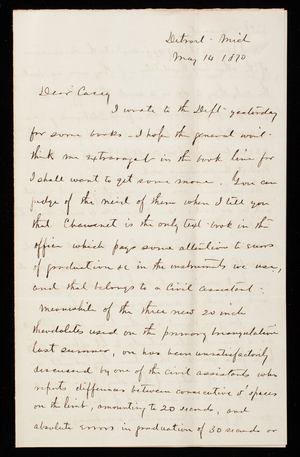 Detroit - Mich
May 14 1870
Dear Casey
I wrote to the Dept - yesterday
for some books - I hope the general won't
think me extravagant in the book line for
I shall want to get some more. You can
judge of the need of them when I tell you
that Chauvenet is the only text-book in the
office which pays some attention to errors
of graduation &c in the instruments we use,
and that belongs to a Civil assistant -
Meanwhile of the three new 20 inch
theodolites used on the primary triangulation
last summer, one has been unsatisfactorily
discussed by one of the civil assistants who
reports differences between consecutive 5' spaces
on the limb, amounting to 20 seconds, and
absolute errors in graduation of 30 seconds or